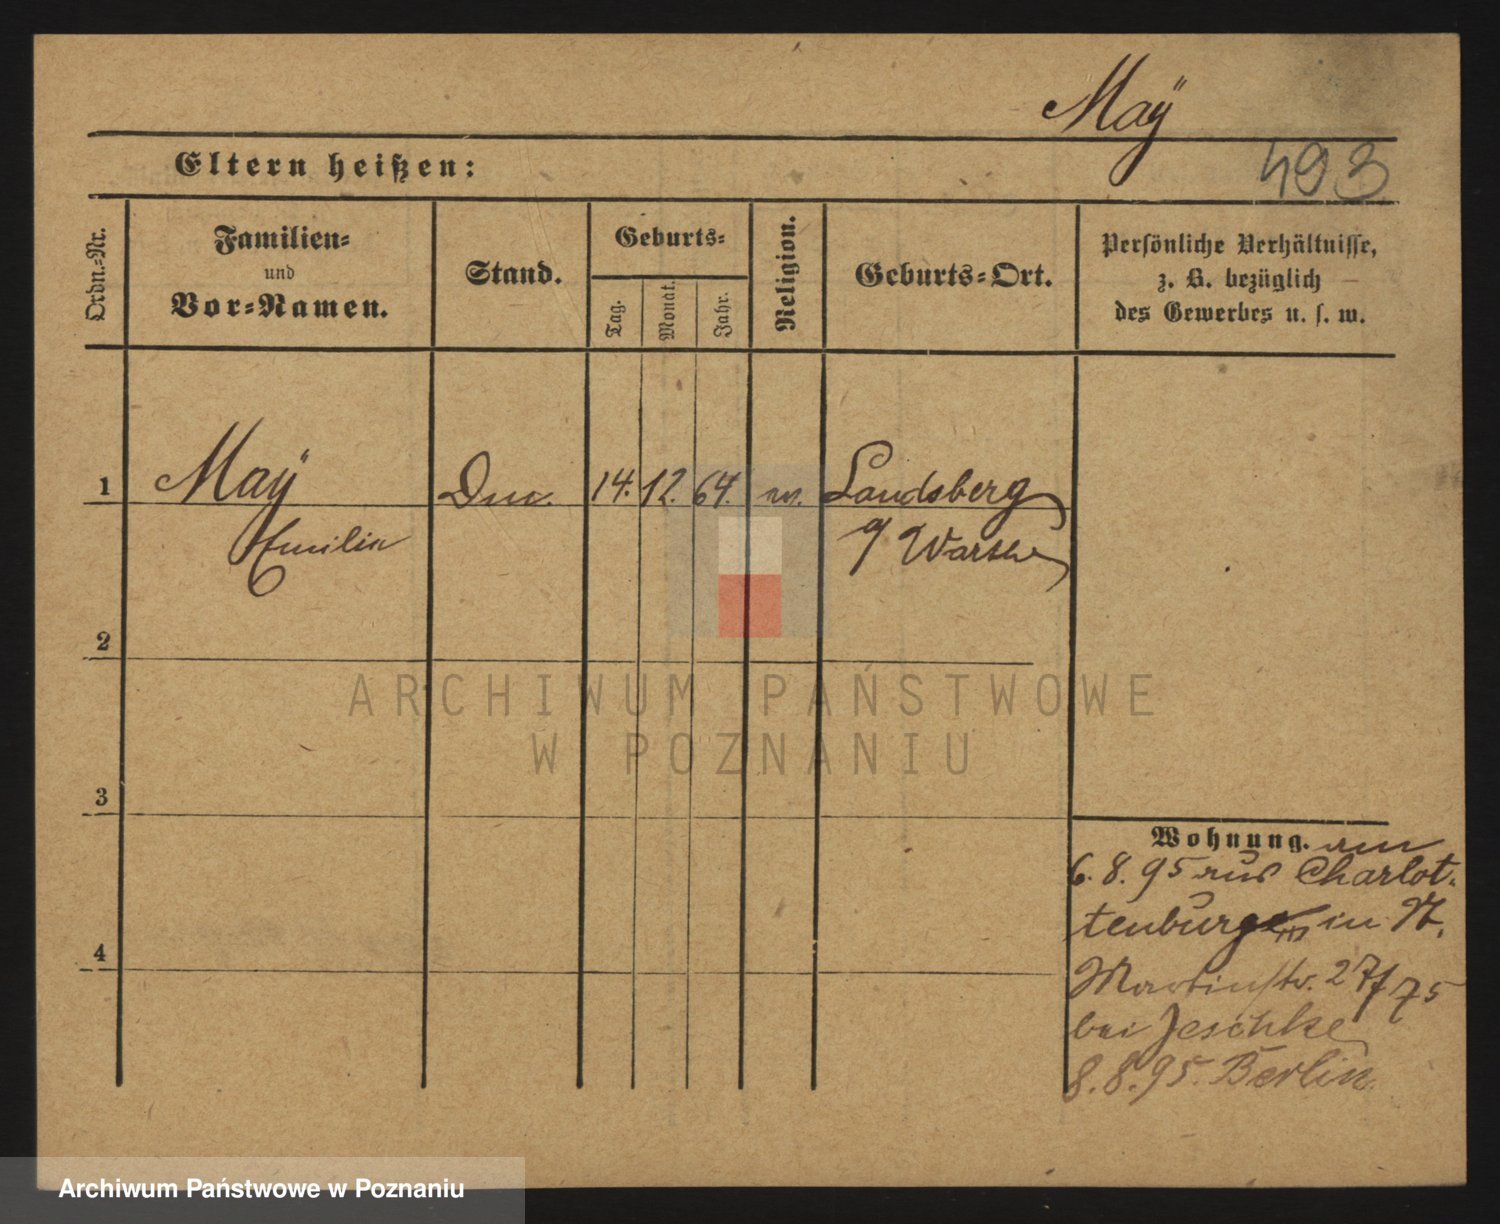 Maÿ
493
Eltern heißen:
Ordn.-Nr.
Familien-
und
Vor-Namen.
Stand.
Geburts-
Tag.
Monat.
Jahr.
Religion.
Geburts-Ort.
Persönliche Verhältnisse,
z. B. bezüglich
des Gewerbes u. s. w.
1 Maÿ 14. 12. 64. Landsberg
Emilie Warthe
2
3
4
ARCHIWUM PAŃSTWOWE
W POZNANIU
Wohnung. am
6. 8. 95 aus Charlot-
tenburg in St.
Martinstr. 27/75
bei Jeschke
8. 8. 95. Berlin
Archiwum Państwowe w Poznaniu